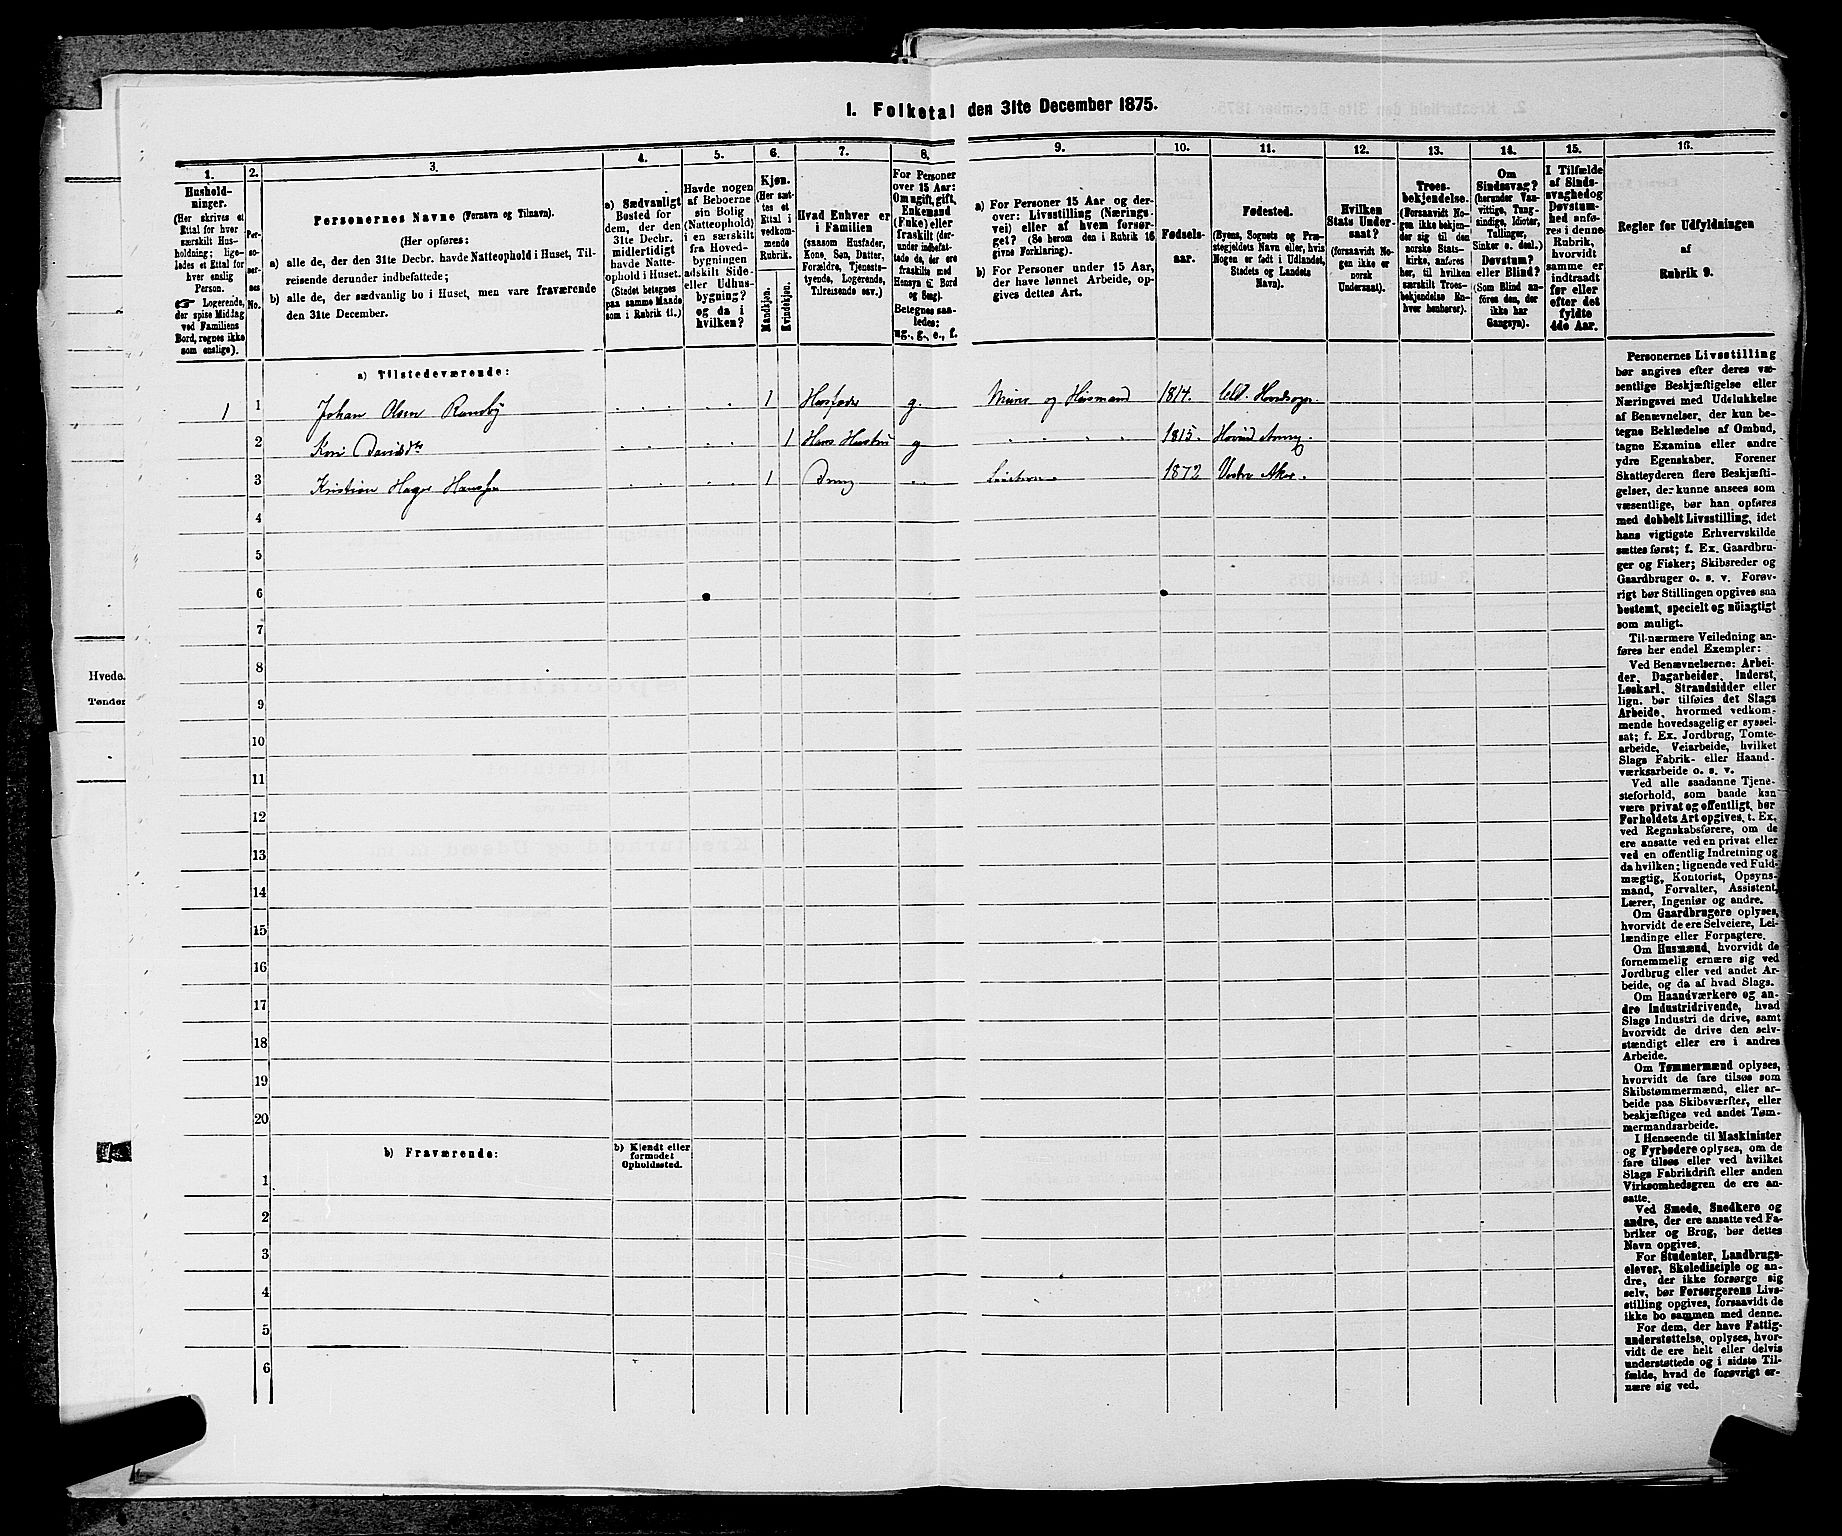 1. Folketal den 31te December 1875.
1.
Hushold-
ninger.
(Her skrives et
Ettal for hver
særskilt Hus-
holdning; lige-
ledes et Ettal for
hver enslig
Person.
☞ Logerende,
der spise Middag
ved Familiens
Bord, regnes ikke
som enslige).
2.
Per-
so-
ner-
nes
No.
3.
Personernes Navne (Fornavn og Tilnavn).
(Her opføres:
a) alle de, der den 31te Decbr. havde Natteophold i Huset, Til-
reisende derunder indbefattede;
b) alle de, der sædvanlig bo i Huset, men vare fraværende
den 31te December.
4.
a) Sædvanligt
Bosted for
dem, der den
31te Decbr.
midlertidigt
havde Natte-
ophold i Huset.
(Stedet betegnes
paa samme Maade
som i Rubrik 11.)
5.
Havde nogen
af Beboerne
sin Bolig
(Natteophold)
i en særskilt
fra Hoved-
bygningen
adskilt Side-
eller Udhus-
bygning?
og da i
hvilken?
6.
Kjøn.
(Her sæt-
tes et
Ettal i
vedkom-
mende
Rubrik.
Mandkjøn.
Kvindekjøn.
7.
Hvad Enhver er
i Familien
(saasom Husfader,
Kone, Søn, Datter,
Forældre, Tjeneste-
tyende, Logerende,
Tilreisende osv.)
8.
For Personer
over 15 Aar:
Om ugift, gift,
Enkemand
(Enke) eller
fraskilt (der-
under indbefat-
tede de, der ere
fraskilte med
Hensyn til Bord
og Seng).
Betegnes saa-
ledes:
ug., g., e., f.
9.
a) For Personer 15 Aar og der-
over: Livsstilling (Nærings-
vei) eller af hvem forsør-
get? (Se herom den i Rubrik 16
givne Forklaring).
b) For Personer under 15 Aar,
der have lønnet Arbeide, op-
gives dettes Art.
10.
Fødsels-
aar.
11.
Fødested.
(Byens, Sognets og Præ-
stegjeldets Navn eller, hvis
Nogen er født i Udlandet,
Stedets og Landets
Navn).
12.
Hvilken
Stats Under-
saat?
(forsaavidt No-
gen ikke er
norsk
Undersaat).
13.
Troes-
bekjendelse.
(Forsaavidt No-
gen ikke bekjen-
der sig til den
norske Stats-
kirke, anføres
her, til hvilken
særskilt Troes-
bekjendelse En-
hver henhører).
14.
Om
Sindssvag?
(herunder Van-
vittige, Tung-
sindige, Idioter,
Tullinger,
Sinker o. desl.)
Døvstum?
eller Blind?
(Som Blind an-
føres den, der
ikke har
Gangsyn).
15.
I Tilfælde
af Sinds-
svaghed og
Døvstum-
hed anfø-
res i denne
Rubrik,
hvorvidt
samme er
indtraadt
før eller
efter det
fyldte
4de Aar.
16.
Regler for Udfyldningen
af
Rubrik 9.
a) Tilstedeværende:
1 1 Johan Olsen 1 Husfader g. Murer og Husmand 1814.
2 Kari Davidsdtr 1 Hans Hustru g 1815.
3 Kristian Hager Hanssen 1 1872 Vestre Aker.
4
5
6
7
8
9
10
11
12
13
14
15
16
17
18
19
20
b) Fraværende:
b) Kjendt eller
formodet
Opholdssted.
1
2
3
4
5
6
Personernes Livsstilling
bør angives efter deres væ-
sentlige Beskjæftigelse eller
Næringsvei med Udelukkelse
af Benævnelser, der kun be-
tegne Beklædelse af Ombud,
tagne Examina eller andre
ydre Egenskaber. Forener
Skatteyderen flere Beskjæfti-
gelser, der kunne ansees som
væsentlige, bør han opføres
med dobbelt Livsstilling, idet
hans vigtigste Erhvervskilde
sættes først; f. Ex. Gaardbru-
ger og Fisker; Skibsreder og
Gaardbruger o. s. v. Forøv-
rigt bør Stillingen opgives saa
bestemt, specielt og nöiagtigt
som muligt.
Til nærmere Veiledning an-
føres her endel Exempler:
Ved Benævnelserne: Arbei-
der, Dagarbeider, Inderst,
Løskarl, Strandsidder eller
lign. bør tilføies det Slags
Arbeide, hvormed vedkom-
mende hovedsagelig er syssel-
sat; f. Ex. Jordbrug, Tomte-
arbeide, Veiarbeide, hvilket
Slags Fabrik- eller Haand-
værksarbeide o. s. v.
Ved alle saadanne Tjene-
steforhold, som baade kan
være privat og offentligt, bør
Forholdets Art opgives, t. Ex.
ved Regnskabsførere, om de
ere ansatte ved en privat eller
ved en offentlig Indretning og
da hvilken; lignende ved Fuld-
mægtig, Kontorist, Opsyns-
mand, Forvalter, Assistent,
Lærer, Ingeniør og andre.
Om Gaardbrugere oplyses,
hvorvidt de ere Selveiere, Lei-
lændinge eller Forpagtere.
Om Husmænd, hvorvidt de
fornemmelig ernære sig ved
Jordbrug eller ved andet Ar-
beide, og da af hvad Slags.
Om Haandværkere og an-
dre Industridrivende, hvad
Slags Industri de drive, samt
hvorvidt de drive den selv-
stændigt eller ere i andres
Arbeide.
Om Tømmermænd oplyses,
hvorvidt de fare tilsøs som
Skibstømmermænd, eller ar-
beide paa Skibsværfter, eller
beskjæftiges ved andet Tøm-
mermandsarbeide.
I Henseende til Maskinister
og Fyrbødere oplyses, om de
fare tilsøs eller ved hvilket
Slags Fabrikdrift eller anden
Virksomhedsgren de ere an-
satte.
Ved Smede, Snedkere og
andre, der ere ansatte ved Fa-
briker og Brug, bør dettes
Navn opgives.
For Studenter, Landbrugs-
elever, Skoledisciple og an-
dre, der ikke forsørge sig
selv, bør Forsørgerens Livs-
stilling opgives, forsaavidt de
ikke bo sammen med denne.
For dem, der have Fattig-
understøttelse, oplyses, hvor-
vidt de ere helt eller delvis
understøttede og i sidste Til-
fælde, hvad de forøvrigt er-
nære sig ved.
Hvede.
Tønder